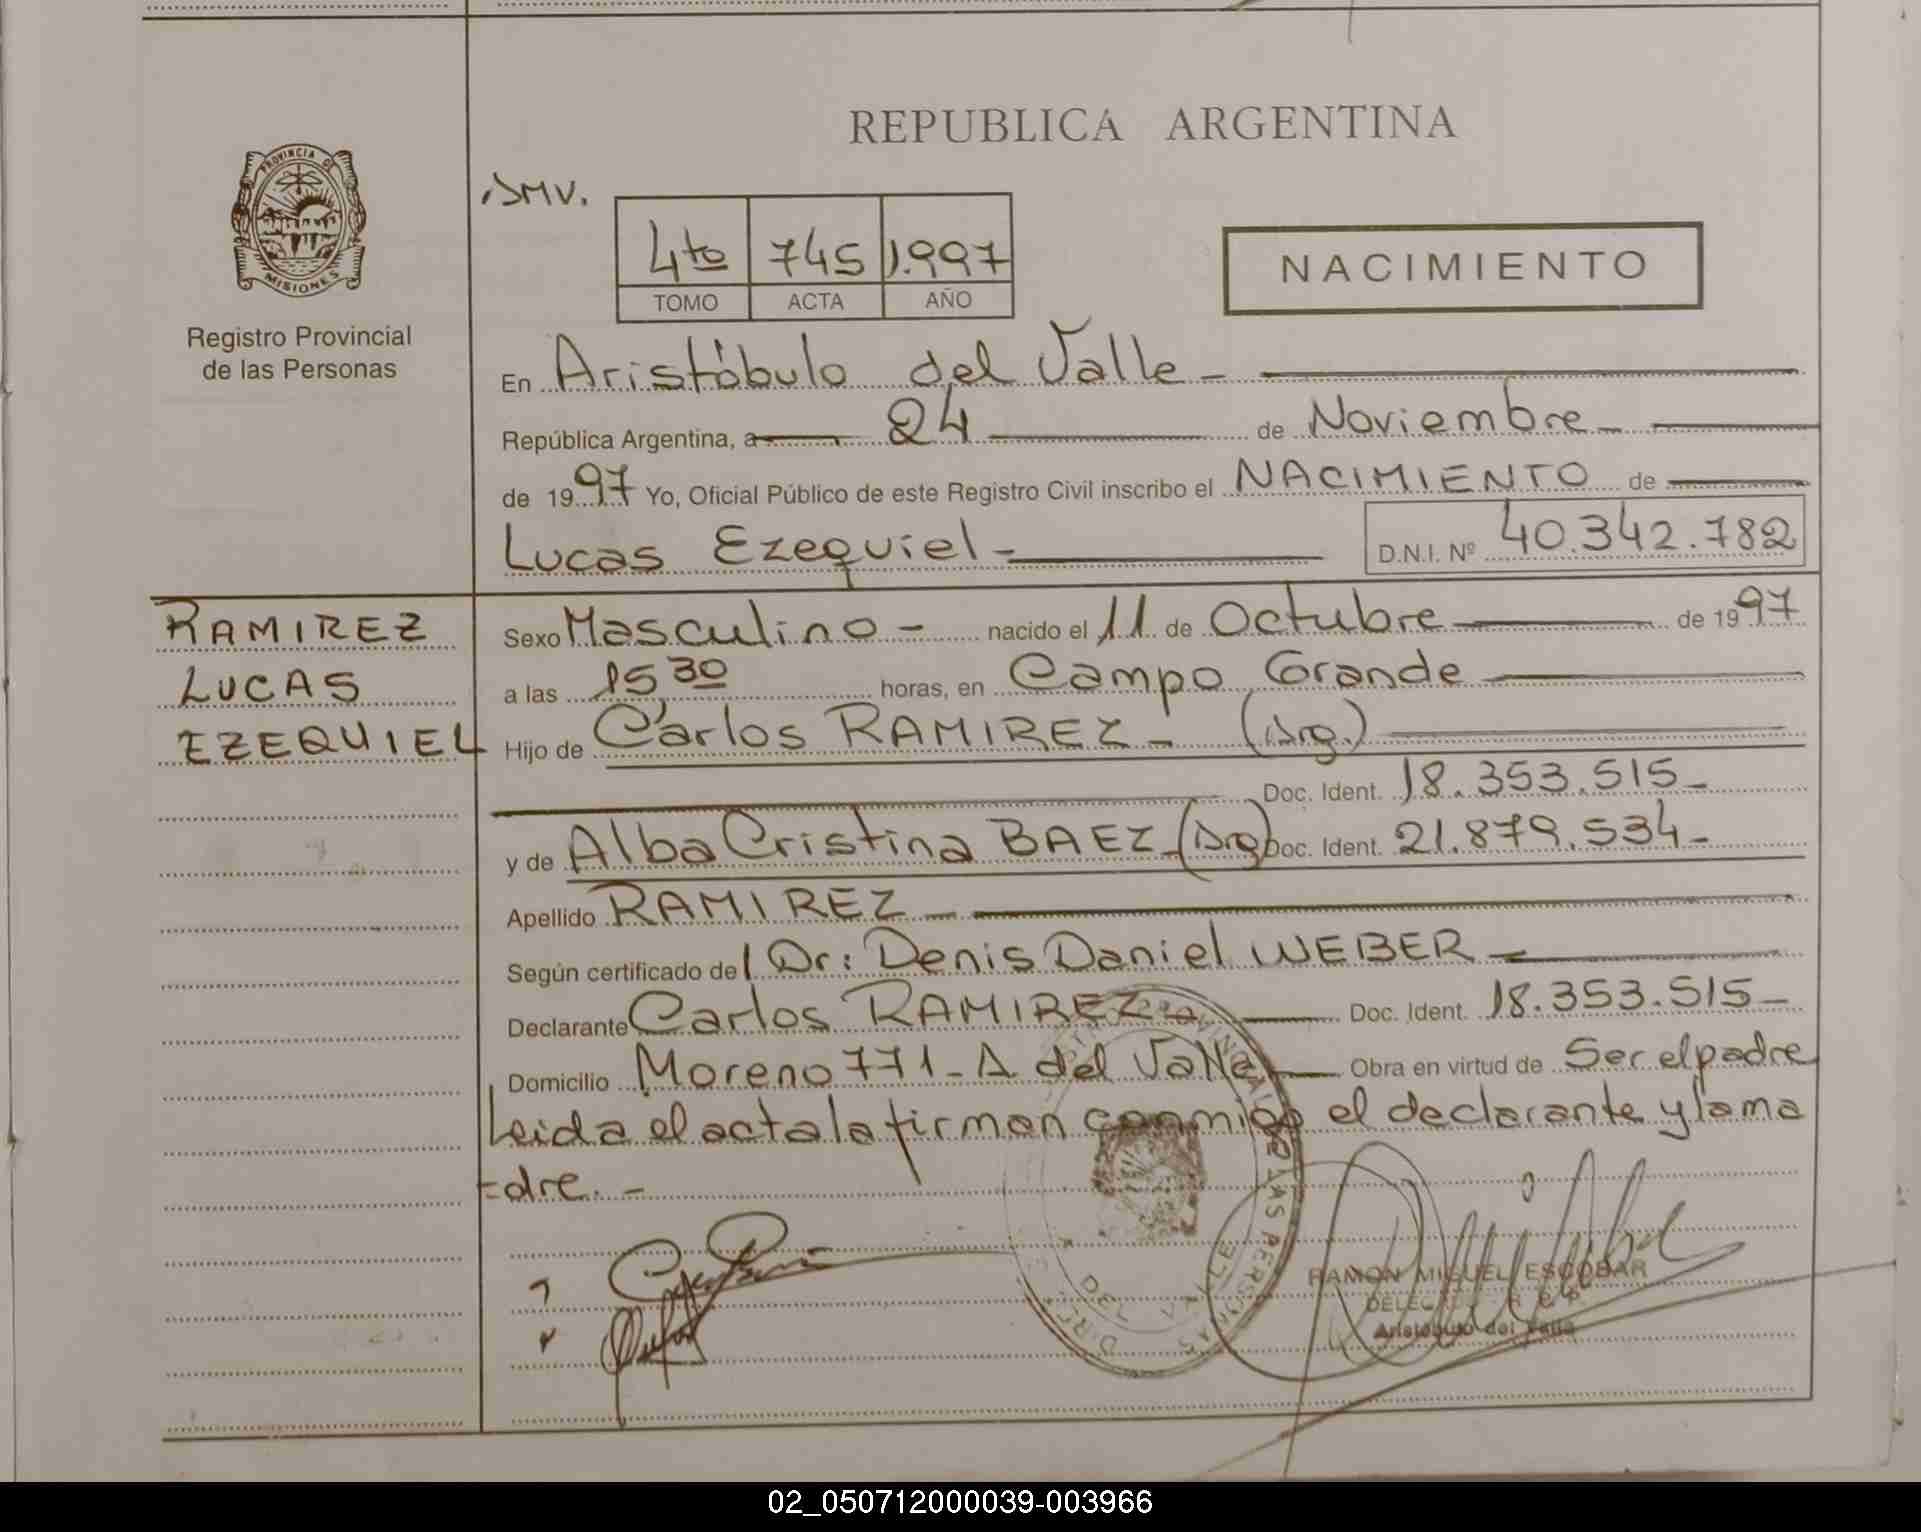 REPUBLICA ARGENTINA
PROVINCIA DE
MISIONES
Registro Provincial
de las Personas
4to 745 1.997
TOMO ACTA AÑO
NACIMIENTO
En Aristóbulo del Valle -
República Argentina, a 24 de Noviembre
de 1997 Yo, Oficial Público de este Registro Civil inscribo el NACIMIENTO de
Lucas Ezequiel - D.N.I. Nº 40.342.782
RAMIREZ
LUCAS
EZEQUIEL
Sexo Masculino - nacido el 11 de Octubre de 1997
a las 15,30 horas, en Campo Grande
Hijo de Carlos RAMIREZ - (Arg.)
Doc. Ident. 18.353.515 -
y de Alba Cristina BAEZ - (Arg) Doc. Ident. 21.879.534 -
Apellido RAMIREZ -
Según certificado del Dr: Denis Daniel WEBER -
Declarante Carlos RAMIREZ - Doc. Ident. 18.353.515 -
Domicilio Moreno 771 - A del Valle Obra en virtud de Ser el padre
Leida el acta la firman conmigo el declarante y la ma
=dre. -
RAMON MIGUEL ESCOBAR
Aristóbulo del Valle
02_050712000039-003966